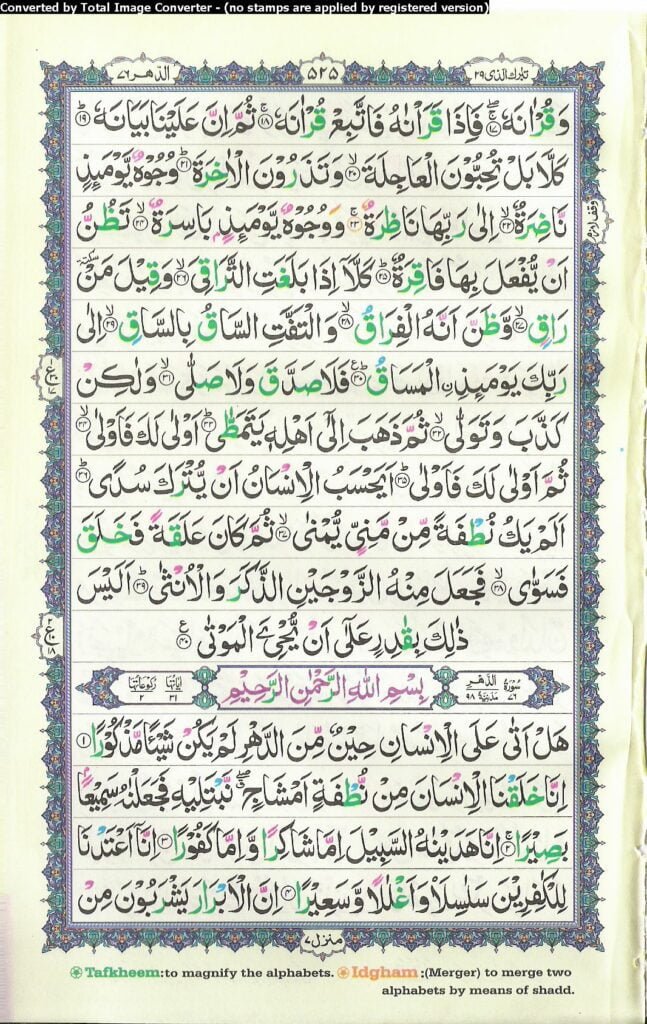 Converted by Total Image Converter - (no stamps are applied by registered version)
تبٰرك الذی ۲۹
۵۲۵
الدّهر ۷۶
وَ قُرْاٰنَهٗ ۝۱۷ۚۖ فَاِذَا قَرَاْنٰهُ فَاتَّبِعْ قُرْاٰنَهٗ ۝۱۸ۚ ثُمَّ اِنَّ عَلَیْنَا بَیَانَهٗ ۝۱۹ؕ
كَلَّا بَلْ تُحِبُّوْنَ الْعَاجِلَةَ ۝۲۰ۙ وَ تَذَرُوْنَ الْاٰخِرَةَ ۝۲۱ؕ وُجُوْهٌ یَّوْمَىِٕذٍ
نَّاضِرَةٌ ۝۲۲ۙ اِلٰى رَبِّهَا نَاظِرَةٌ ۝۲۳ۚ وَ وُجُوْهٌ یَّوْمَىِٕذٍۭ بَاسِرَةٌ ۝۲۴ۙ تَظُنُّ
وقف لازم
اَنْ یُّفْعَلَ بِهَا فَاقِرَةٌ ۝۲۵ؕ كَلَّاۤ اِذَا بَلَغَتِ التَّرَاقِیَ ۝۲۶ۙ وَ قِیْلَ مَنْ ٚ سكتة
رَاقٍ ۝۲۷ۙ وَّ ظَنَّ اَنَّهُ الْفِرَاقُ ۝۲۸ۙ وَ الْتَفَّتِ السَّاقُ بِالسَّاقِ ۝۲۹ۙ اِلٰى
رَبِّكَ یَوْمَىِٕذِ ِ۟الْمَسَاقُ ۝۳۰ؕ۠ فَلَا صَدَّقَ وَ لَا صَلّٰى ۝۳۱ۙ وَ لٰكِنْ
كَذَّبَ وَ تَوَلّٰى ۝۳۲ۙ ثُمَّ ذَهَبَ اِلٰۤى اَهْلِهٖ یَتَمَطّٰى ۝۳۳ؕ اَوْلٰى لَكَ فَاَوْلٰى ۝۳۴ۙ
ثُمَّ اَوْلٰى لَكَ فَاَوْلٰى ۝۳۵ؕ اَیَحْسَبُ الْاِنْسَانُ اَنْ یُّتْرَكَ سُدًى ۝۳۶ؕ
اَلَمْ یَكُ نُطْفَةً مِّنْ مَّنِیٍّ یُّمْنٰى ۝۳۷ۙ ثُمَّ كَانَ عَلَقَةً فَخَلَقَ
فَسَوّٰى ۝۳۸ۙ فَجَعَلَ مِنْهُ الزَّوْجَیْنِ الذَّكَرَ وَ الْاُنْثٰى ۝۳۹ؕ اَلَیْسَ
ذٰلِكَ بِقٰدِرٍ عَلٰۤى اَنْ یُّحْیَِۧ الْمَوْتٰى ۝۴۰۠
سُوْرَةُ الدَّهْرِ ۷۶ مَدَنِیَّةٌ ۹۸
بِسْمِ اللّٰهِ الرَّحْمٰنِ الرَّحِیْمِ
اٰیَاتُهَا ۳۱ رُكُوْعَاتُهَا ۲
هَلْ اَتٰى عَلَى الْاِنْسَانِ حِیْنٌ مِّنَ الدَّهْرِ لَمْ یَكُنْ شَیْـًٔا مَّذْكُوْرًا ۝۱
اِنَّا خَلَقْنَا الْاِنْسَانَ مِنْ نُّطْفَةٍ اَمْشَاجٍ ۖۗ نَّبْتَلِیْهِ فَجَعَلْنٰهُ سَمِیْعًۢا
بَصِیْرًا ۝۲ۚ اِنَّا هَدَیْنٰهُ السَّبِیْلَ اِمَّا شَاكِرًا وَّ اِمَّا كَفُوْرًا ۝۳ اِنَّاۤ اَعْتَدْنَا
لِلْكٰفِرِیْنَ سَلٰسِلَاۡ وَ اَغْلٰلًا وَّ سَعِیْرًا ۝۴ اِنَّ الْاَبْرَارَ یَشْرَبُوْنَ مِنْ
منزل ۷
Tafkheem:to magnify the alphabets. Idgham :(Merger) to merge two
alphabets by means of shadd.